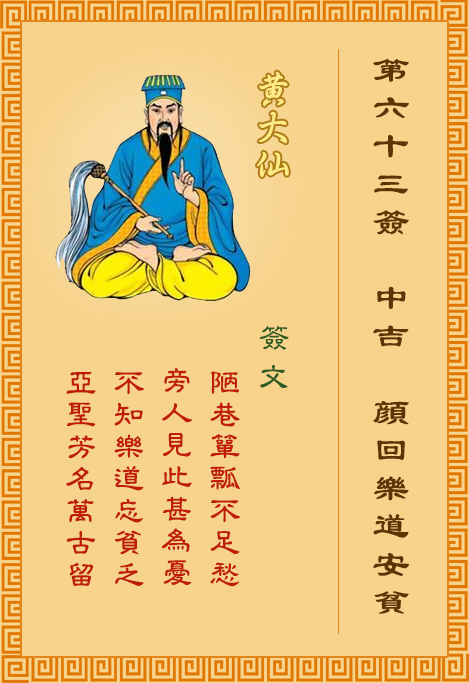 第六十三簽 中吉 顔回樂道安貧
黃大仙
簽文
陋巷簞瓢不足愁
旁人見此甚為憂
不知樂道忘貧乏
亞聖芳名萬古留